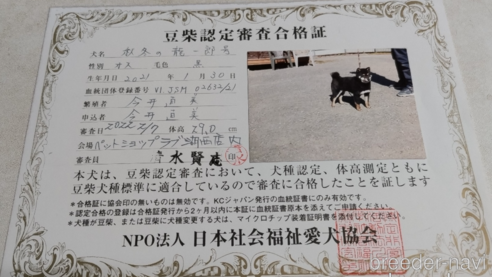 豆柴認定審査合格証
犬名
性別 オス 毛色 黒
生年月日 2021年1月30日
血統団体登録番号
繁殖者 今井直美
申込者 今井直美
審査日 体高 29.0 cm
会場 ペットショップラブ
審査員 清水賢庵 印
本犬は、豆柴審査において、犬種認定、体高測定ともに
豆柴犬種標準に適合しているので審査に合格したことを証します
*合格証に協会印の無いものは無効です。KCジャパン発行の血統証書にのみ有効です。
*認定合格の登録は合格証発行から2ヶ月以内に本証に血統証書原本を添えてご申請ください。
*犬種が豆柴、または豆柴に犬種変更する犬は、マイクロチップ装着証明書を添付してください。
NPO法人 日本社会福祉愛犬協会
breeder-navi